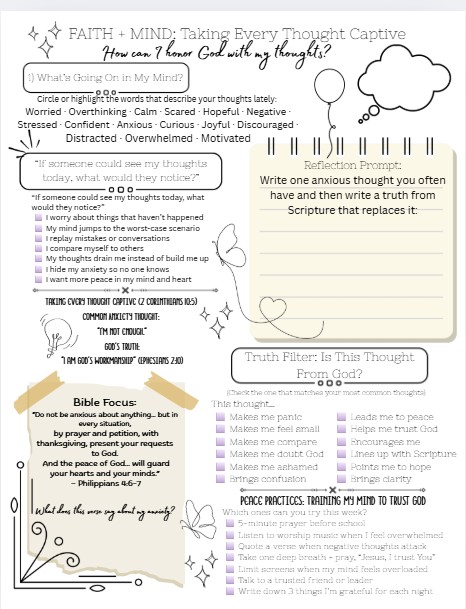 FAITH + MIND: Taking Every Thought Captive
How can I honor God with my thoughts?
1) What's Going On in My Mind?
Circle or highlight the words that describe your thoughts lately:
Worried · Overthinking · Calm · Scared · Hopeful · Negative ·
Stressed · Confident · Anxious · Curious · Joyful · Discouraged ·
Distracted · Overwhelmed · Motivated
"If someone could see my thoughts
today, what would they notice?"
"If someone could see my thoughts today, what
would they notice?"
I worry about things that haven't happened
My mind jumps to the worst-case scenario
I replay mistakes or conversations
I compare myself to others
My thoughts drain me instead of build me up
I hide my anxiety so no one knows
I want more peace in my mind and heart
TAKING EVERY THOUGHT CAPTIVE (2 CORINTHIANS 10:5)
COMMON ANXIETY THOUGHT:
"I'M NOT ENOUGH."
GOD'S TRUTH:
"I AM GOD'S WORKMANSHIP" (EPHESIANS 2:10)
Bible Focus:
"Do not be anxious about anything... but in
every situation,
by prayer and petition, with
thanksgiving, present your requests
to God.
And the peace of God... will guard
your hearts and your minds."
– Philippians 4:6–7
What does this verse say about my anxiety?
Reflection Prompt:
Write one anxious thought you often
have and then write a truth from
Scripture that replaces it:
Truth Filter: Is This Thought
From God?
(Check the one that matches your most common thoughts)
This thought...
Makes me panic
Makes me feel small
Makes me compare
Makes me doubt God
Makes me ashamed
Brings confusion
Leads me to peace
Helps me trust God
Encourages me
Lines up with Scripture
Points me to hope
Brings clarity
PEACE PRACTICES: TRAINING MY MIND TO TRUST GOD
Which ones can you try this week?
5-minute prayer before school
Listen to worship music when I feel overwhelmed
Quote a verse when negative thoughts attack
Take one deep breath + pray, "Jesus, I trust You"
Limit screens when my mind feels overloaded
Talk to a trusted friend or leader
Write down 3 things I'm grateful for each night.